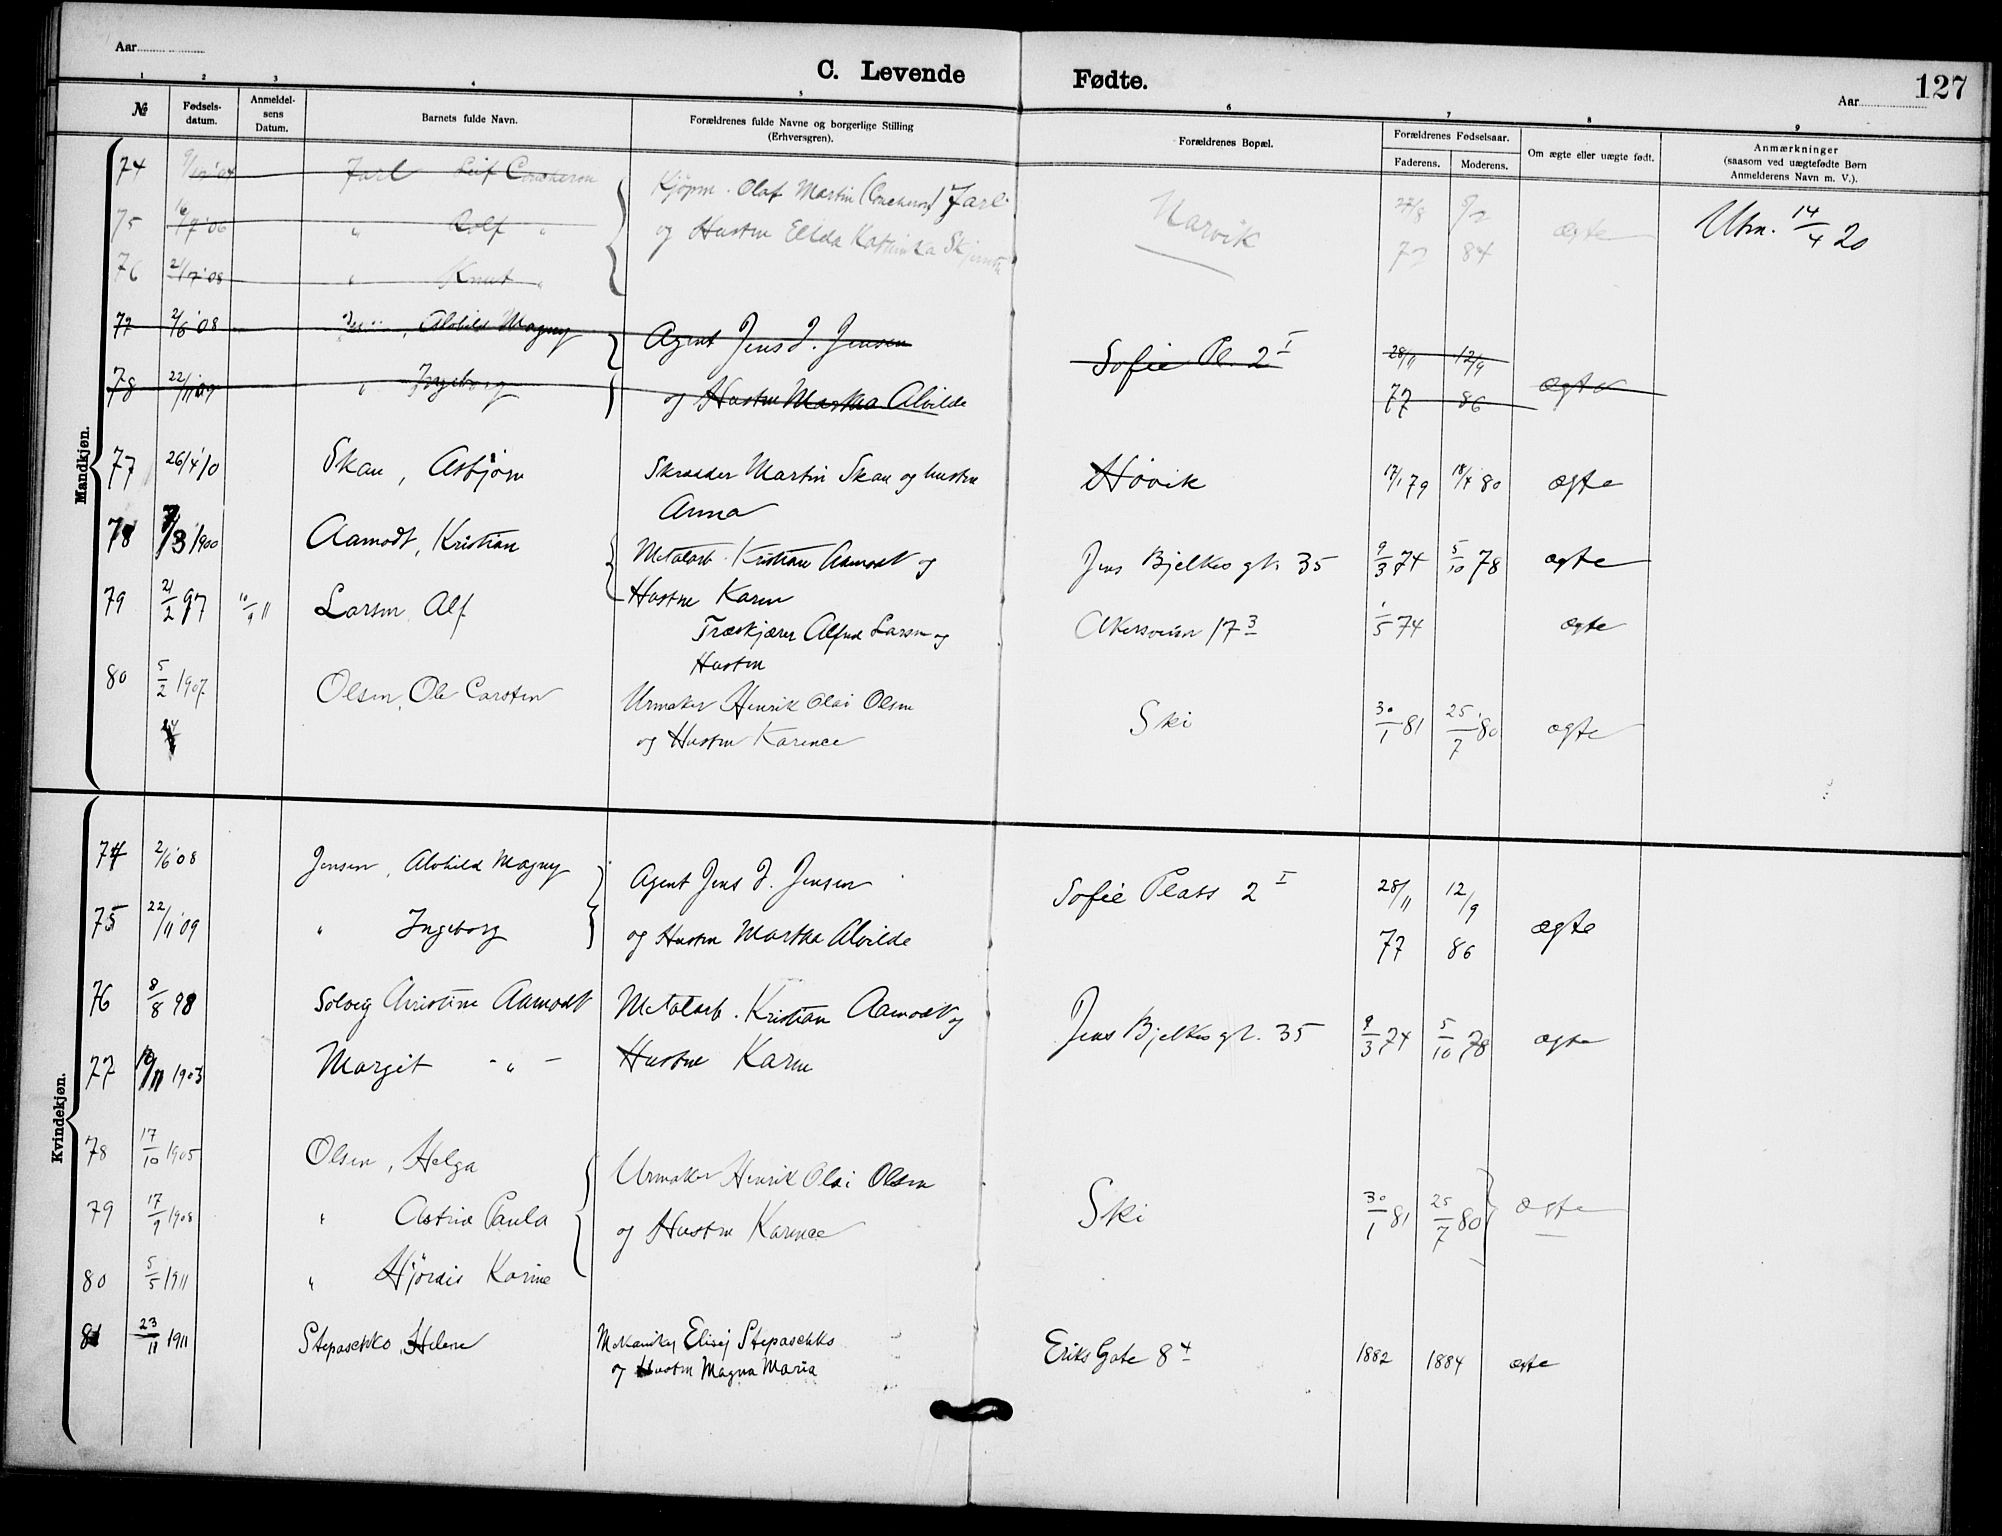 Aar
C. Levende Fødte.
127
Aar
1 2 3 4 5 6 7 8 9
№
Fødsels-
datum.
Anmeldel-
sens
Datum.
Barnets fulde Navn.
Forældrenes fulde Navne og borgerlige Stilling
(Erhversgren).
Forældrenes Bopæl.
Forældrenes Fødselsaar.
Faderens. Moderens.
Om ægte eller uægte født.
Anmærkninger
(saasom ved uægtefødte Børn
Anmelderens Navn m. V.).
Mandkjøn.
74 Jarl Leif Concheron Kjøpm. Olaf Martin (Concheron) Jarl
75 16/7 '06 " Rolf " og Hustru Narvik 72 84 ægte Utm. 14/4 20
76 2/7 '08 " Knut "
77 2/6 '08 Alvhild Magny Agent Jens J. Jensen Sofie Pl. 2 I 28/11 12/9
78 22/11 09 " Ingeborg og Hustru Martha Alvilde 77 86 ægte
77 26/4 10 Skau, Asbjørn Skrædder Martin Skau og hustru Høvik 17/1 79 18/4 80 ægte
Anna
78 7/3 1900 Aamodt, Kristian Metalarb. Kristian Aamodt og Jens Bjelkes gt. 35 9/3 74 5/10 78 ægte
Hustru Karen
79 21/2 97 10/9 11 Larsen, Alf Træskjærer Alfred Larsen og Akersveien 17 3 1/5 74 ægte
Hustru
80 5/2 1907 Olsen, Ole Carsten Urmaker Henrik Olai Olsen Ski 30/1 81 25/7 80 ægte
og Hustru Karence
Kvindekjøn.
74 2/6 '08 Jensen, Alvhild Magny Agent Jens J. Jensen Sofie Plass 2 I 28/11 12/9
75 22/11 '09 " Ingeborg og Hustru Martha Alvilde 77 86 ægte
76 8/8 98 Solveig Christine Aamodt Metalarb. Kristian Aamodt og Jens Bjelkes gt. 35 9/3 74 5/10 78 ægte
77 10/11 1903 Margit - " - Hustru Karen
78 17/10 1905 Olsen, Helga Urmaker Henrik Olai Olsen
79 17/9 1908 " Astrid Paula og Hustru Karence Ski 30/1 81 25/7 80 ægte
80 5/5 1911 " Hjørdis Karine
81 23/11 1911 Stepaschko, Helene Mekaniker Elisej Stepaschko Eriks Gate 8 4 1882 1884 ægte
og Hustru Magna Maria